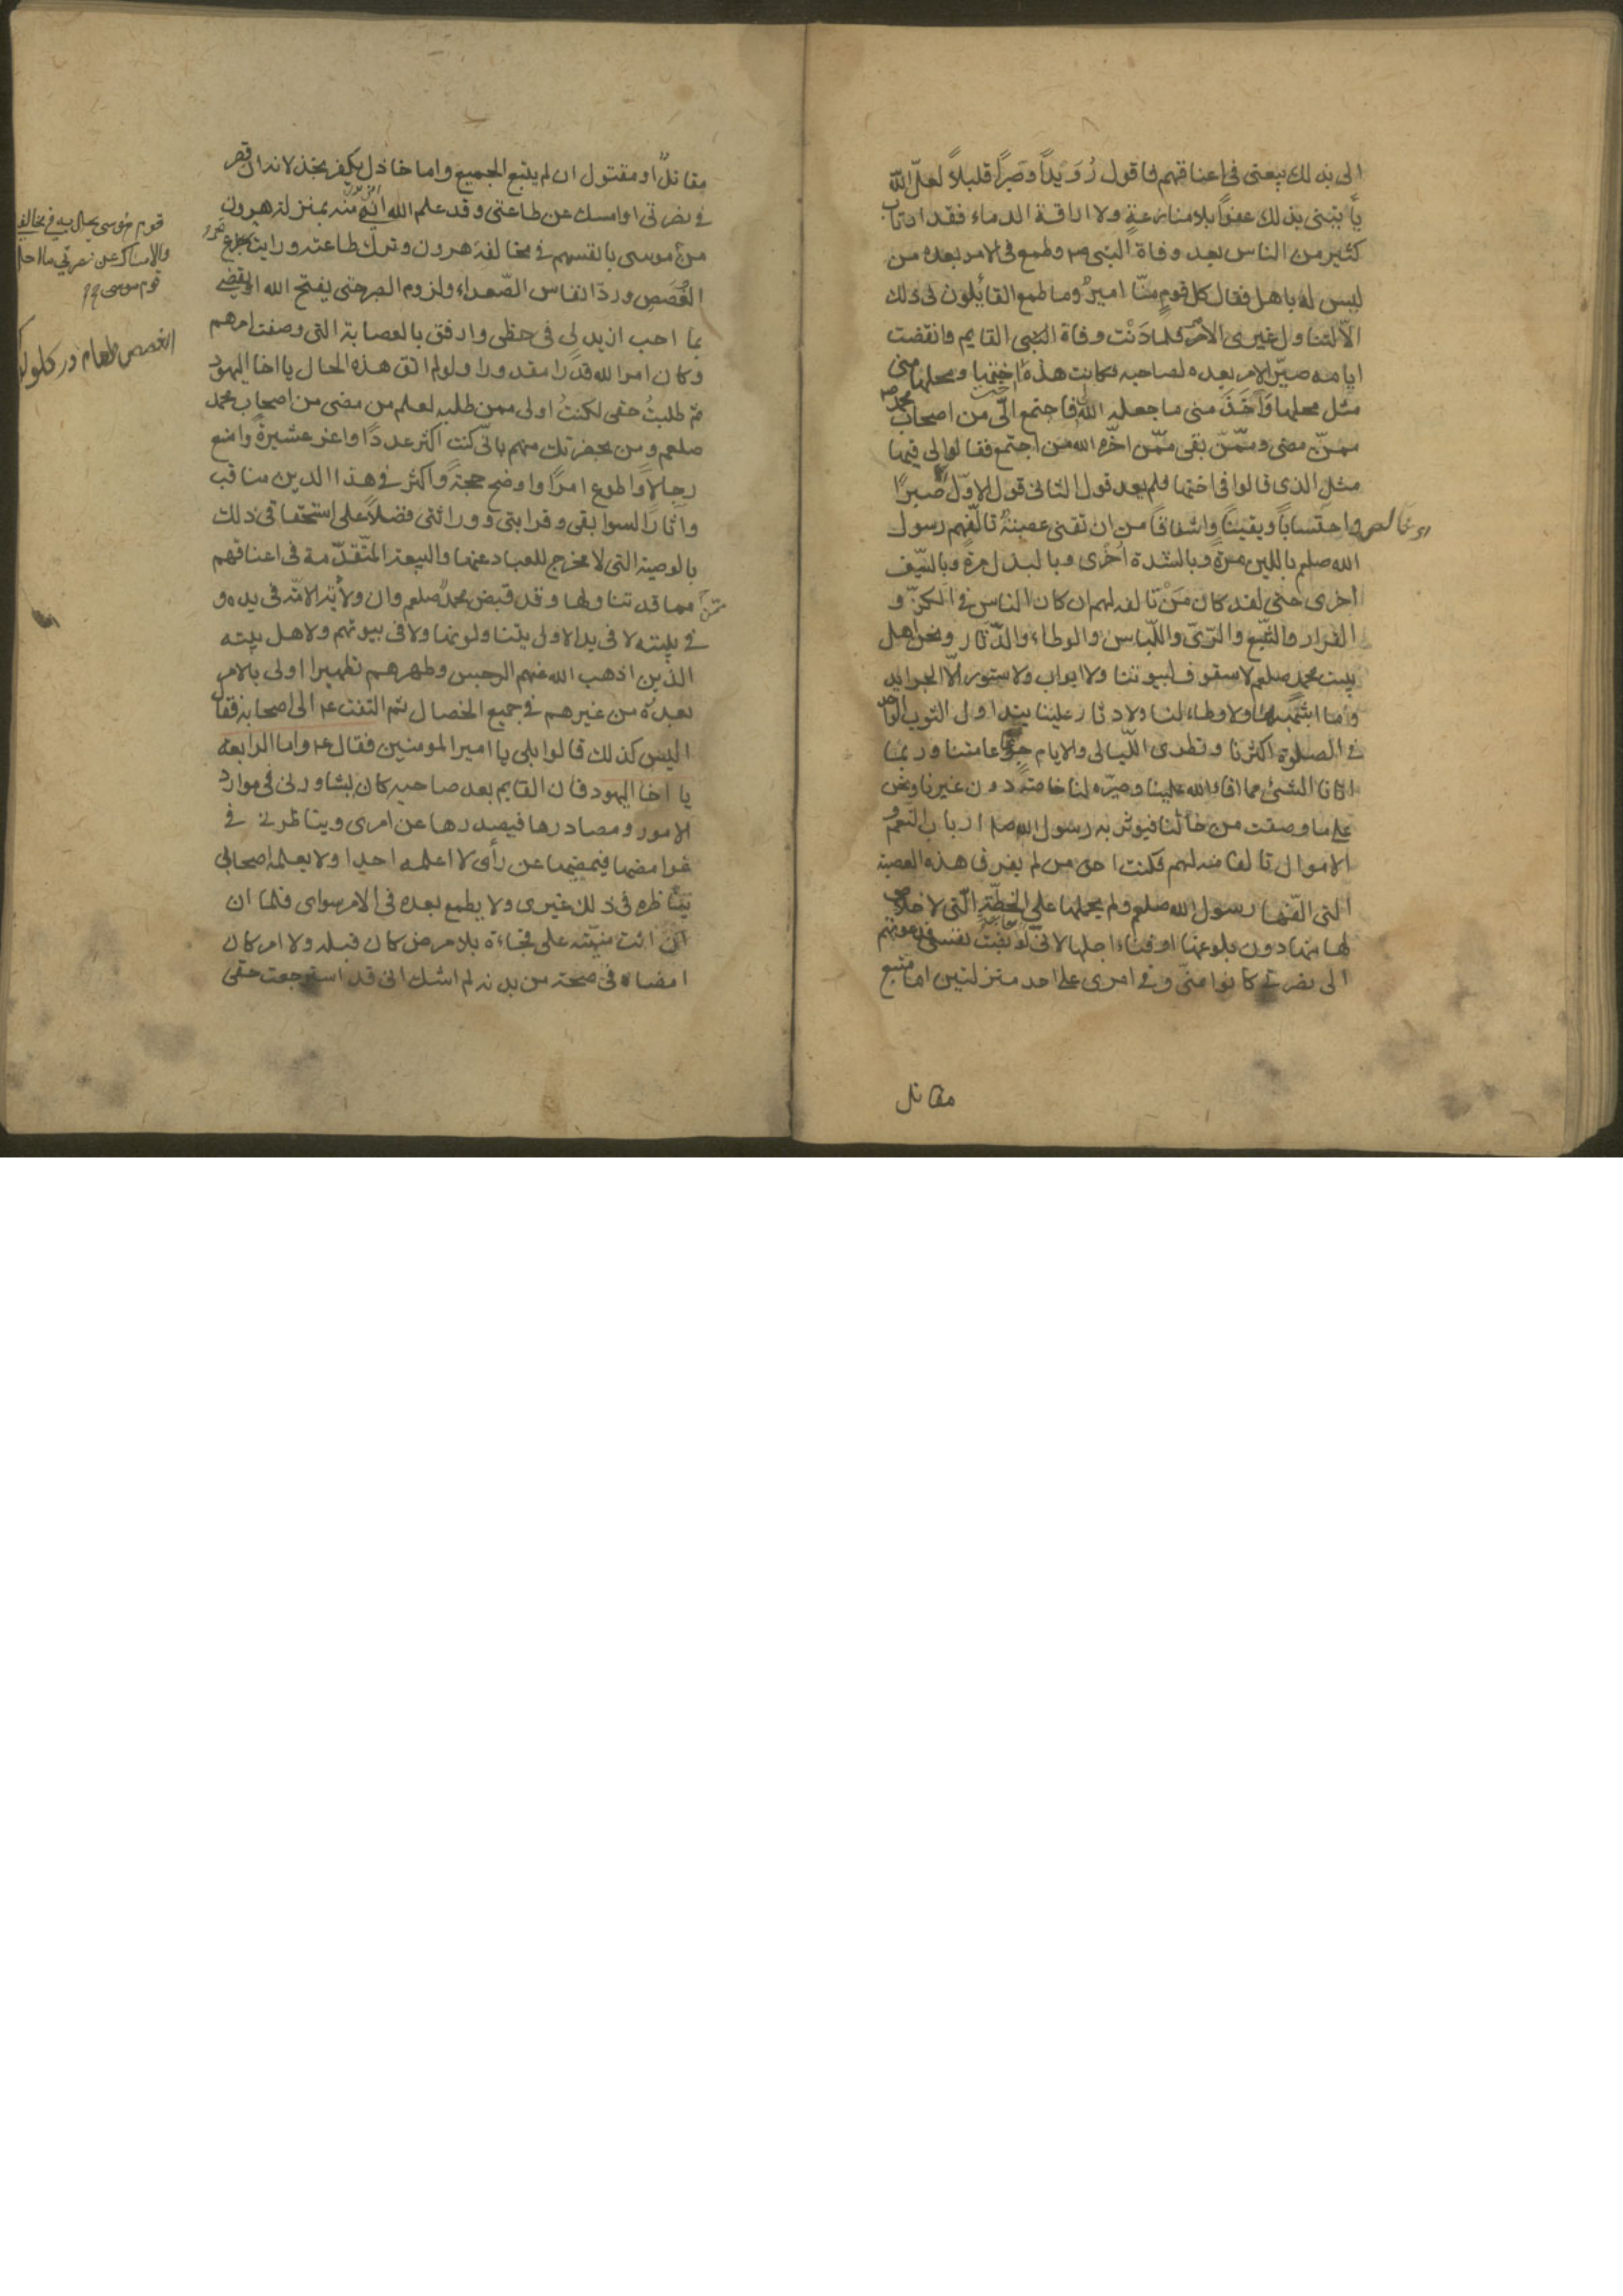 الى بذلك بيعتى فى اعناقهم فاقول رُوَيْداً وصَبراً قليلاً لعلّ اللّٰه
يأتينى بذلك عفواً بلا منازعةٍ ولا اراقة الدماء فقد ارتاب
كثير من الناس بعد وفاة النبى ص وطمع فى الامر بعده من
ليس له باهل فقال كل قومٍ منّا اميرٌ وما طمع القائلون فى ذلك
الّا لتناول غيرى الامر فلما دَنَت وفاة النبى القايم وانقضت
ايامه صيّر الامر بعده لصاحبه فكانت هذه اختها ومحلها منى
مثل محلها وَاَخَذَ منى ما جعله اللّٰه لى فاجتمع الىّ من اصحاب محمد ص
ممّن مضى وممّن بقى ممّن اخّره اللّٰه من اجتمع فقالوا لى فيها
مثل الذى قالوا فى اختها فلم يعد قولى الثانى قولى الاوّل صبراً
واحتساباً ويقيناً واشفاقاً من ان تفنى عصبةٌ تألّفهم رسول
اللّٰه صلعم باللين مرة وبالشدة اُخرى وبالبذل مرة وبالسّيف
اخرى حتى لقد كان مَنْ تألفه لهم ان كان الناس فى الكرّ و
الفرار والشّبع والرّىّ واللّباس والوطاء والدّثار ونحن اهل
بيت محمد صلعم لا سقوف لبيوتنا ولا ابواب ولا ستور الّا الجرايد
وما اشبهها ولا وطاء لنا ولا دثار علينا يتداول الثوب الواحد
فى الصلوة اكثرنا ونطوى اللّيالى والايام جوعاً عامتنا وربما
اتانا الشئ مما افاء اللّٰه علينا وصيّره لنا خاصة دون غيرنا ونحن
على ما وصفت من حالنا فيوثر به رسول اللّٰه صلعم ارباب النّعم و
الاموال تالفا منه لهم فكنت احق من لم يفرق هذه العصبة
التى الّفها رسول اللّٰه صلعم ولم يحملها على الخطّة الّتى لا خلاص
لها منها دون بلوغها او فناء اجلها لانّى لو نصبت نفسى فدعوتهم
الى نصرتى كانوا منّى وفى امرى على احد منزلتين اما متبع
مقاتل
مقاتلٌ او مقتول ان لم يتبع الجميع واما خاذل يكفر بخذلانه ان قصر
فى نصرتى او امسك عن طاعتى وقد علم اللّٰه انى منه بمنزلة هرون
من موسى
الغُصَص وردّ انفاس الصّعداء ولزوم الصبر حتى يفتح اللّٰه او يقضى
بما احب ازيد لى فى حظى وارفق بالعصابة التى وصفت امرهم
وكان امر اللّٰه قدراً مقدورا ولو لم اتق هذه الحال يا اخا اليهود
ثمّ طلبتُ حقى لكنتُ اولى ممن طلبه لعلم من مضى من اصحاب محمد
صلعم ومن بحضرتك منهم بانّى كنت اكثر عدداً واعز عشيرةً وامنع
رجالاً واطوع امراً واوضح حجةً واكثر فى هذا الدين مناقب
وآثاراً لسوابقى وقرابتى ووراثتى فضلاً على استحقاقى ذلك
بالوصية التى لا مخرج للعباد عنها والبيعة المتقدّمة فى اعناقهم
ممن مما قد تناولها وقد قبض محمدٌ صلعم وان ولاية الامّة فى يده و
فى بيته لا فى يد الاولى يتناولونها ولا فى بيوتهم ولاهل بيته
الذين اذهب اللّٰه عنهم الرجس وطهرهم تطهيرا اولى بالامر
بعده من غيرهم فى جميع الخصال ثم التفت ع الى اصحابه فقال
اليس كذلك قالوا بلى يا امير المومنين فقال ع واما الرابعة
يا اخا اليهود فان القايم بعد صاحبه كان يشاورنى فى موارد
الامور ومصادرها فيصدرها عن امرى ويناظرنى فى
غوامضها فيمضيها عن رأى لا اعلمه احدا ولا يعلمه اصحابى
يناظره فى ذلك غيرى ولا يطمع بعده فى الامر سواى فلما ان
ان اتت منيّته على فجاءة بلا مرض كان قبله ولا امر كان
امضاه فى صحة من بدنه لم اشك انى قد استرجعت حقى
قوم موسى
قوم موسى
الغصص طعام در كلو